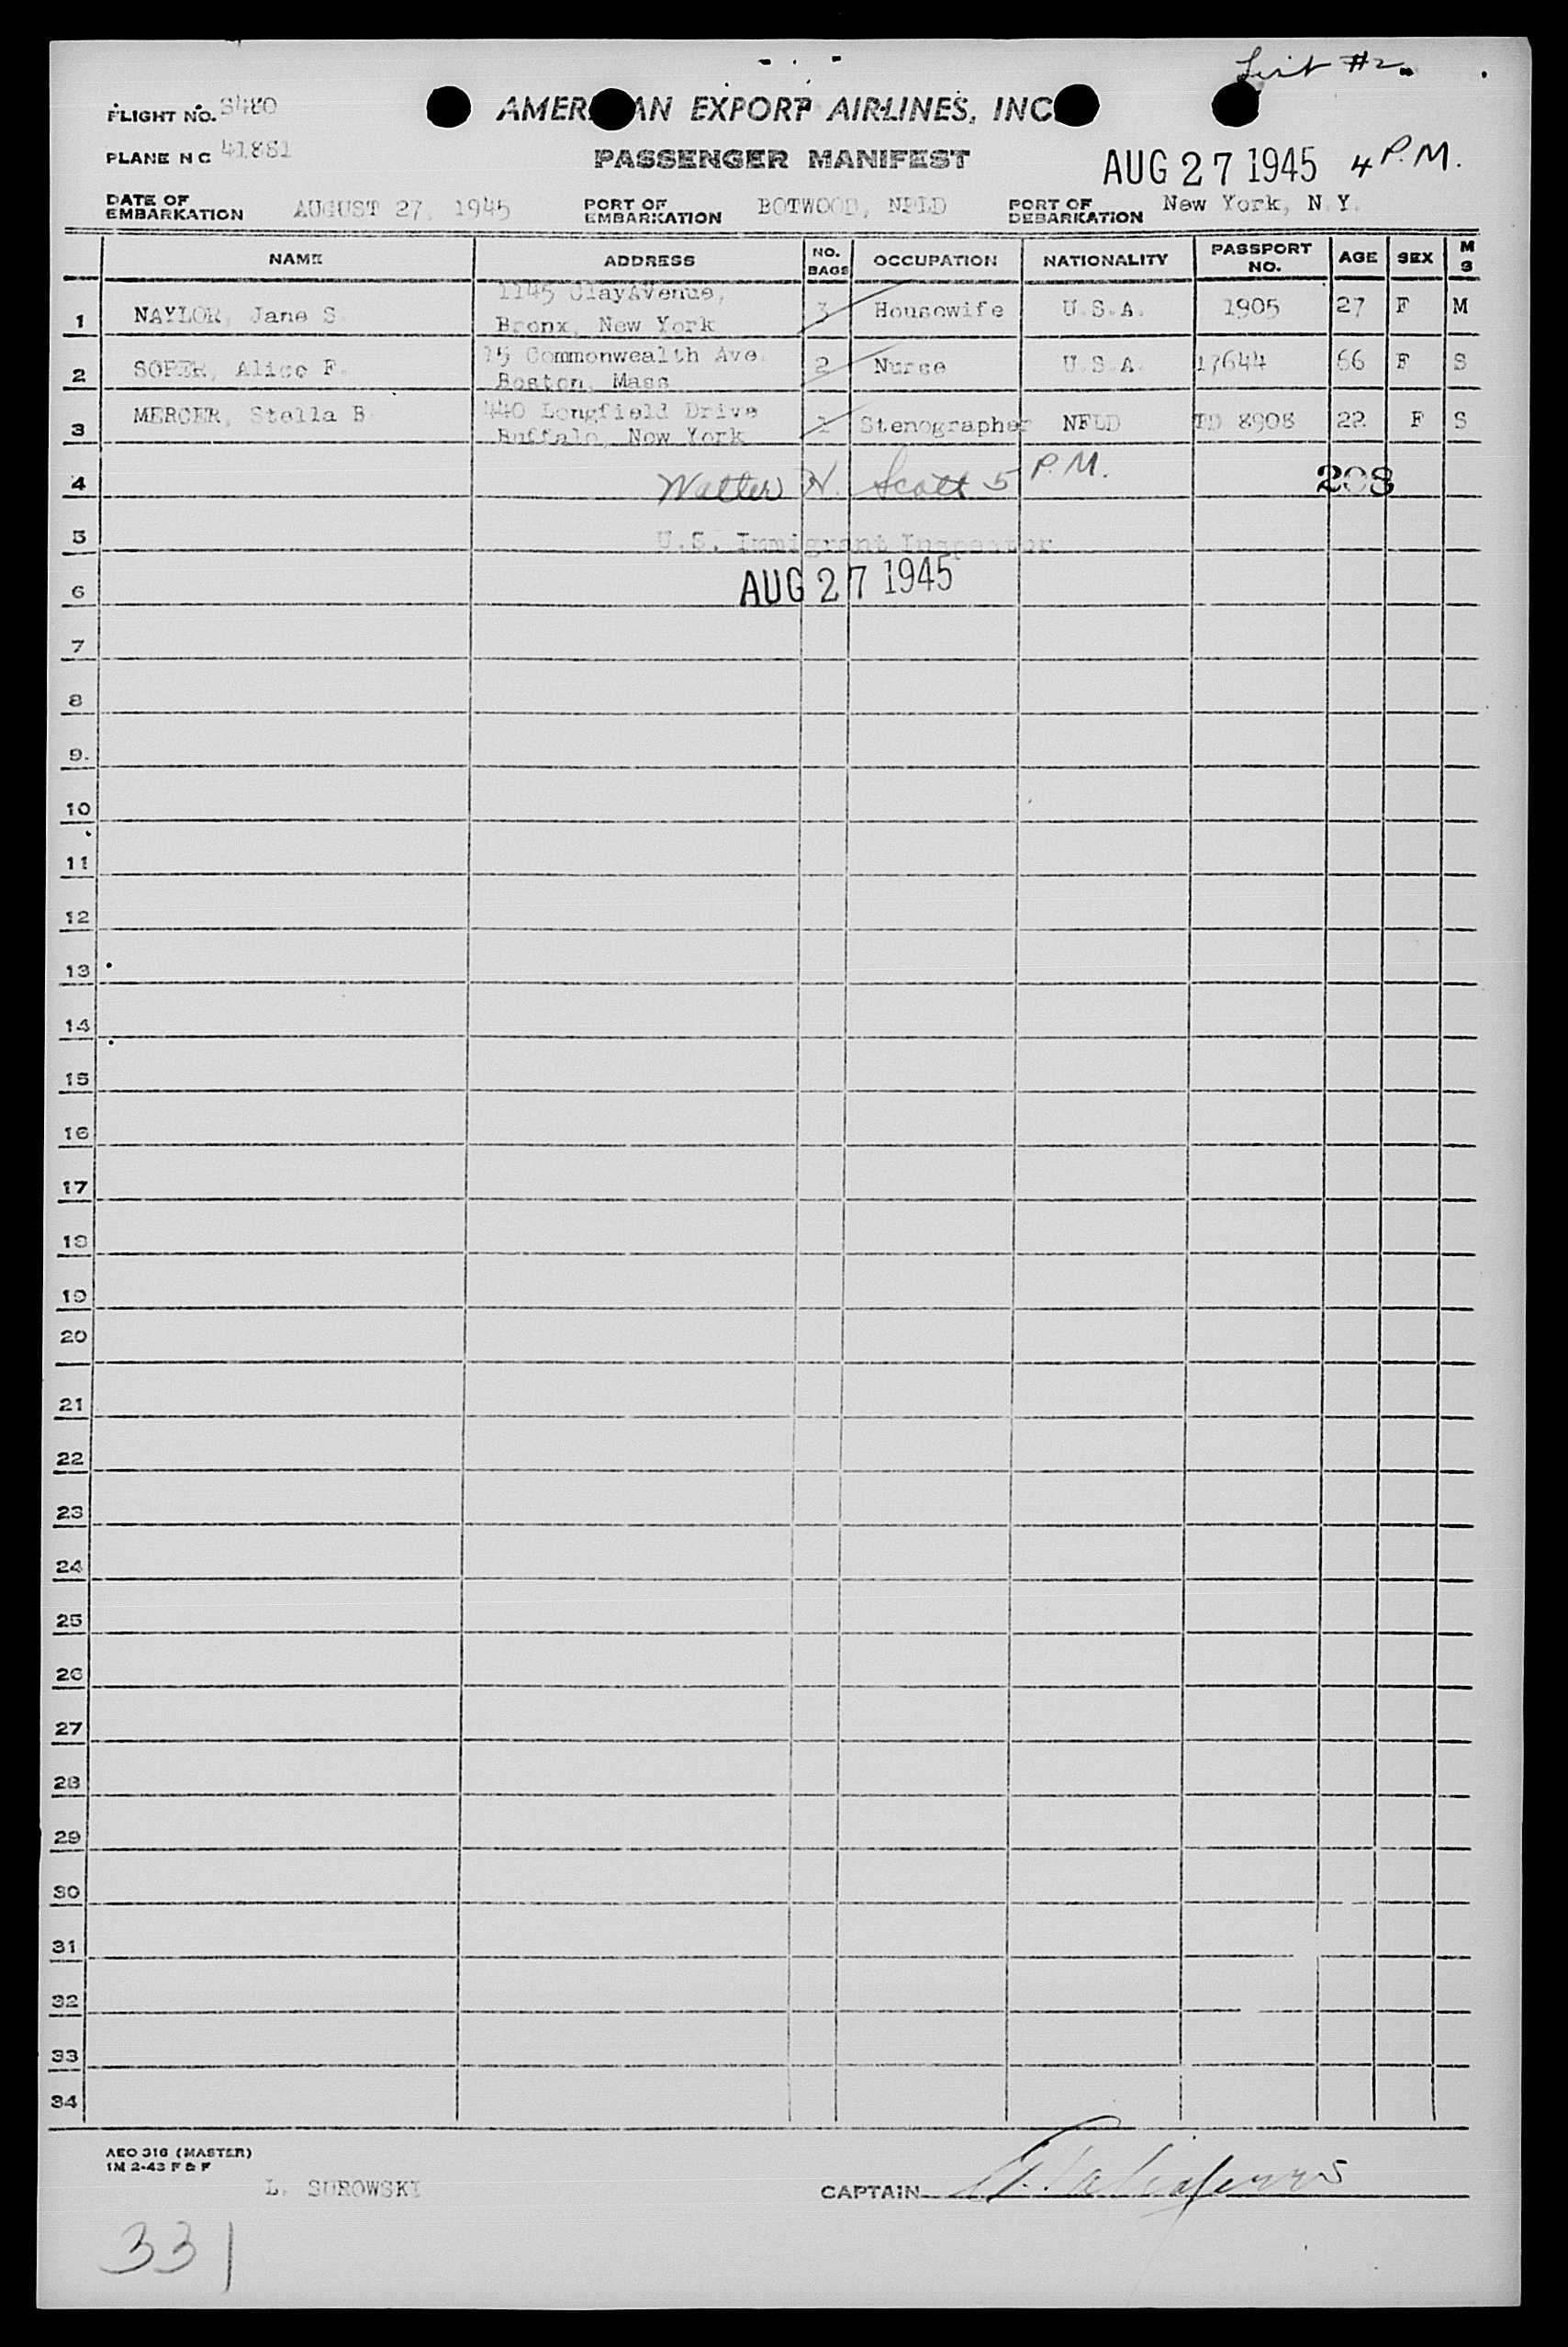 List #2
FLIGHT NO. S480
AMERICAN EXPORT AIRLINES, INC.
PLANE N C 41881
PASSENGER MANIFEST
AUG 27 1945 4 P.M.
DATE OF EMBARKATION AUGUST 27, 1945 PORT OF EMBARKATION BOTWOOD, NFLD PORT OF DEBARKATION New York, N.Y.
NAME ADDRESS NO. BAGS OCCUPATION NATIONALITY PASSPORT NO. AGE SEX M S
1 NAYLOR, Jane S. 1145 ClayAvenue, Bronx, New York 3 Housewife U.S.A. 1905 27 F M
2 SOPER, Alice F. 15 Commonwealth Ave. Boston, Mass 2 Nurse U.S.A. 17644 66 F S
3 MERCER, Stella B 440 Longfield Drive Buffalo, New York 1 Stenographer NFLD TD 8908 22 F S
4 Walter H. Scott 5 P.M. 208
5 U.S. Immigrant Inspector
6 AUG 27 1945
7
8
9
10
11
12
13
14
15
16
17
18
19
20
21
22
23
24
25
26
27
28
29
30
31
32
33
34
AEO 316 (MASTER)
1M 2-43 F & F
L. SUROWSKY
CAPTAIN
331